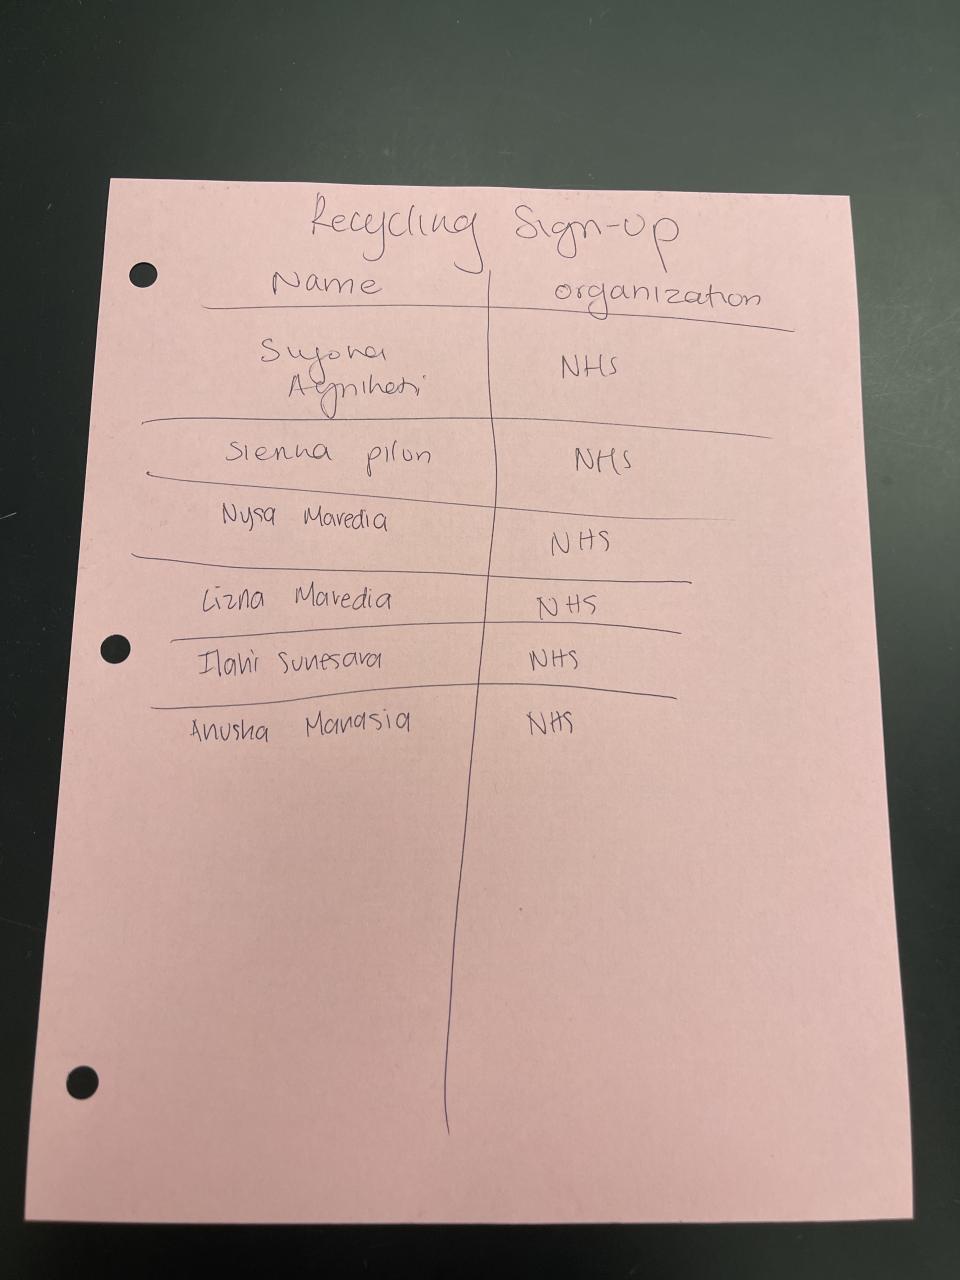 Recycling Sign-up
Name organization
Suyona NHS
Agnihotri
Sienna pilon NHS
Nysa Maredia NHS
Lizna Maredia NHS
Ilahi Sunesara NHS
Anusha Manasia NHS